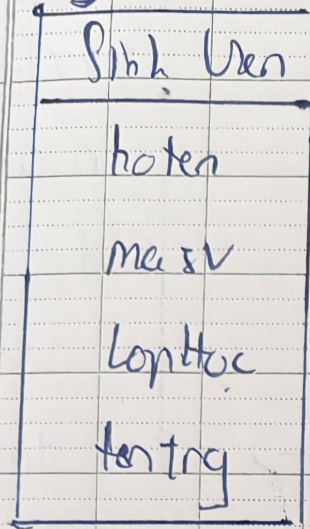 Sinh Vien
hoten
ma sv
LopHọc
ten trg